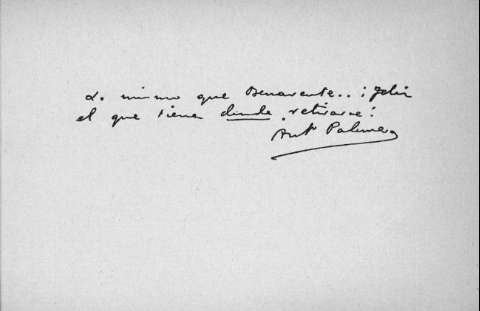 Lo mismo que Benavente.. ¡Feliz
el que tiene donde retirarse!
Ant Palomero